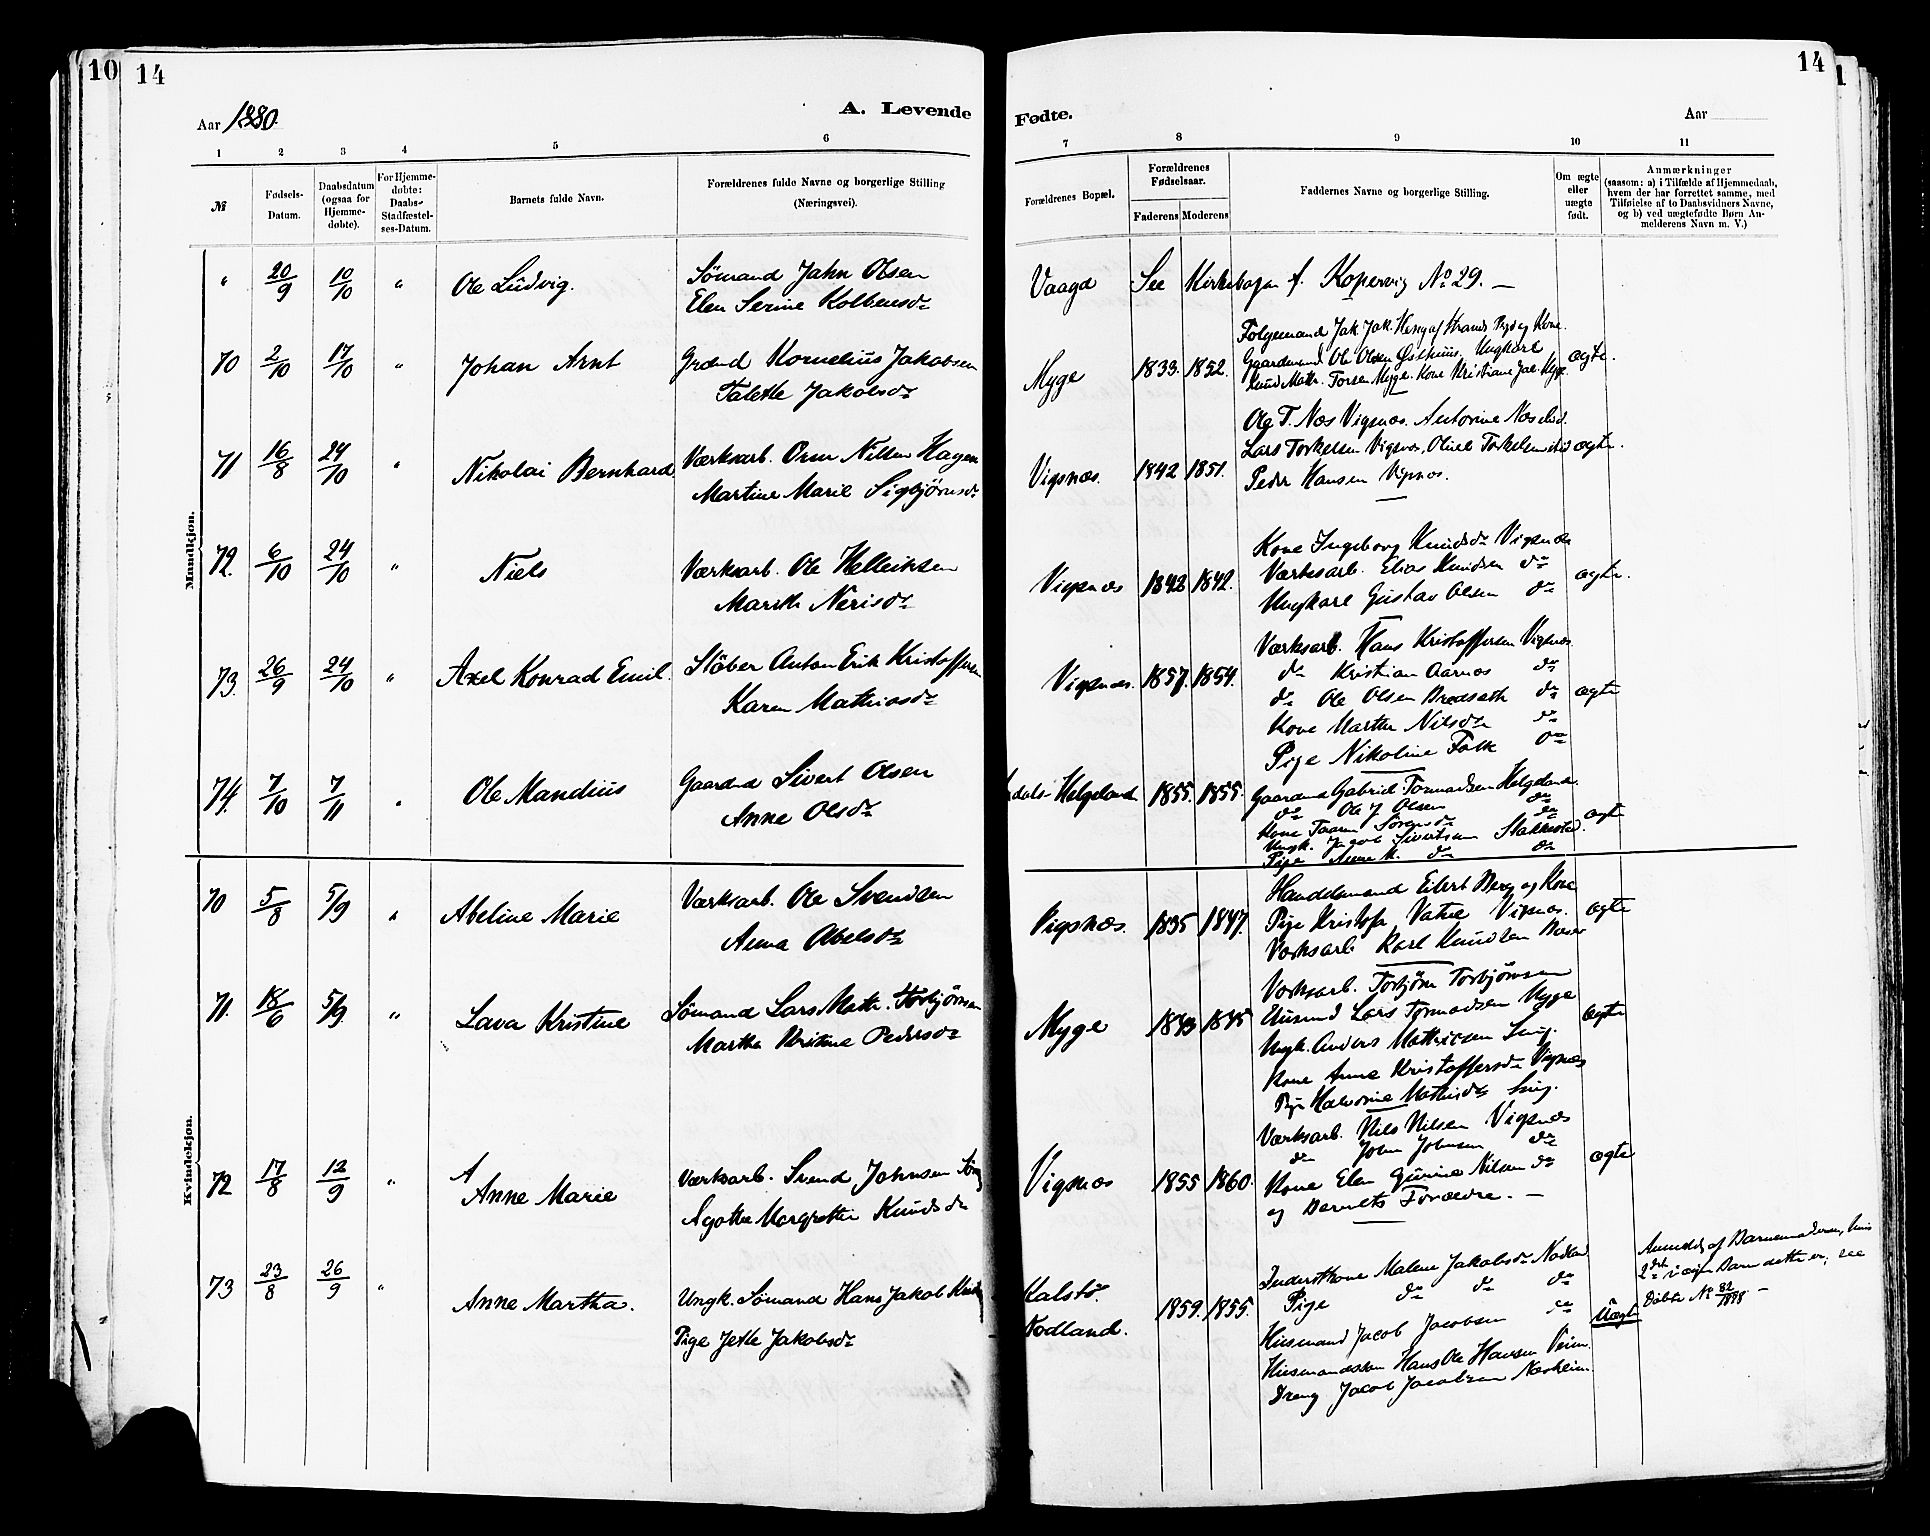 10
14
14
1
Aar 1880.
A. Levende
Fødte.
Aar
1 2 3 4 5 6
7 8 9 10 11
№
Fødsels-Datum.
Daabsdatum (ogsaa for Hjemme-døbte).
For Hjemme-døbte: Daabs-Stadfæstel-ses-Datum.
Barnets fulde Navn.
Forældrenes fulde Navne og borgerlige Stilling (Næringsvei).
Forældrenes Bopæl.
Forældrenes Fødselsaar.
Faderens Moderens
Faddernes Navne og borgerlige Stilling.
Om ægte eller uægte født.
Anmærkninger
(saasom: a) i Tilfælde af Hjemmedaab,
hvem der har forrettet samme, med
Tilføielse af to Daabsvidners Navne,
og b) ved uægtefødte Børn An-
melderens Navn m. V.)
Mandkjøn.
" 20/9 10/10 " Ole Ludvig. Sømand Jahn Olsen
Elen Serine Kolbensdr
Vaagd See Kirkebogen f. Kopervig No 29. —
70 2/10 17/10 " Johan Arnt Grdmd Kornelius Jakobsen
Talette Jakobsdr
Myge 1833. 1852. ægte.
Gaardmand Ole Olsen Østhuus. Ungkarl
71 16/8 24/10 " Nikolai Bernhard Værksarb. Orm Nilsen Hagen
Martine Marie Sigbjørnsdr
Vigsnæs. 1842 1851. ægte.
Lars Torkelsen Vigsnæs,
Peder Hansen Vigsnæs.
72. 6/10 24/10 " Niels Værksarb. Ole Helleiksen
Marthe Nerisdr
Vigsnæs 1842 1842. ægte.
Kone Ingeborg Knudsdr Vigsnæs
Værksarb. Elias Knudsen do
Ungkarl Gustav Olsen do
73. 26/9 24/10 " Axel Konrad Emil. Støber Anton Erik Kristoffersen
Karen Mathiasdr
Vigsnæs. 1857. 1854. ægte
Værksarb. Hans Kristoffersen Vigsnæs
do Kristian Aarnes do
do Ole Olsen Bredsæth do
Kone Marthe Nilsdr do
Pige Nikoline Falk do
74. 7/10 7/11 " Ole Mandius Gaardmd Sivert Olsen
Anne Olsdr
Helgeland 1855. 1855. ægte
Gaardmd Gabriel Tormodsen Helgeland.
do Ole J Olsen do
Kone Taarn Sørensdr do
Ungk. Jacob Sivertsen Stakkested.
Pige Anne M. do do
Kvindekjøn.
70 5/8 5/9 " Abeline Marie Værksarb. Ole Svendsen
Anna Abelsdr
Vigsnæs. 1835 1847. ægte
Handelsmand Eilert Berg og Kone
Pige Kristofa Vatne Vigsnæs.
Værksarb. Karl Knudsen
71. 18/6 5/9. " Lava Kristine Sømand Lars Math. Torbjørnsen
Martha Kristine Pedersdr
Myge 1843 1845 ægte
Værksarb. Torbjørn Torbjørnsen
Husmd Lars Tormodsen Myge
Ungk. Anders Mathiesen
Kone Anne Kristoffersdr Vigsnæs
Pige Halvorine Mathisdr
72 17/8 12/9 " Anne Marie Værksarb. Svend Johnsen
Agathe Margrethe Knudsdr
Vigsnæs 1855 1860. ægte
Værksarb. Nils Nilsen Vigsnæs
do John Johnsen do
Kone Elen Gurine Nilsen do
og Barnets Forældre. —
73 23/8 26/9 " Anne Martha. Ungk. Sømand Hans Jakob
Pige Jette Jakobsdr
Kalstø.
Nodland. 1859. 1855. Uægte
Inderstkone Malene Jakobsdr Nodland
Pige do do do
Husmand Jacob Jacobsen do
Husmandssøn Hans Ole Hansen
Dreng Jacob Jacobsen Nordheim.
Anmeldt af Barnemoderen, hvis
2det uægte Barn dette er; see
Døbte No 82/1898 —